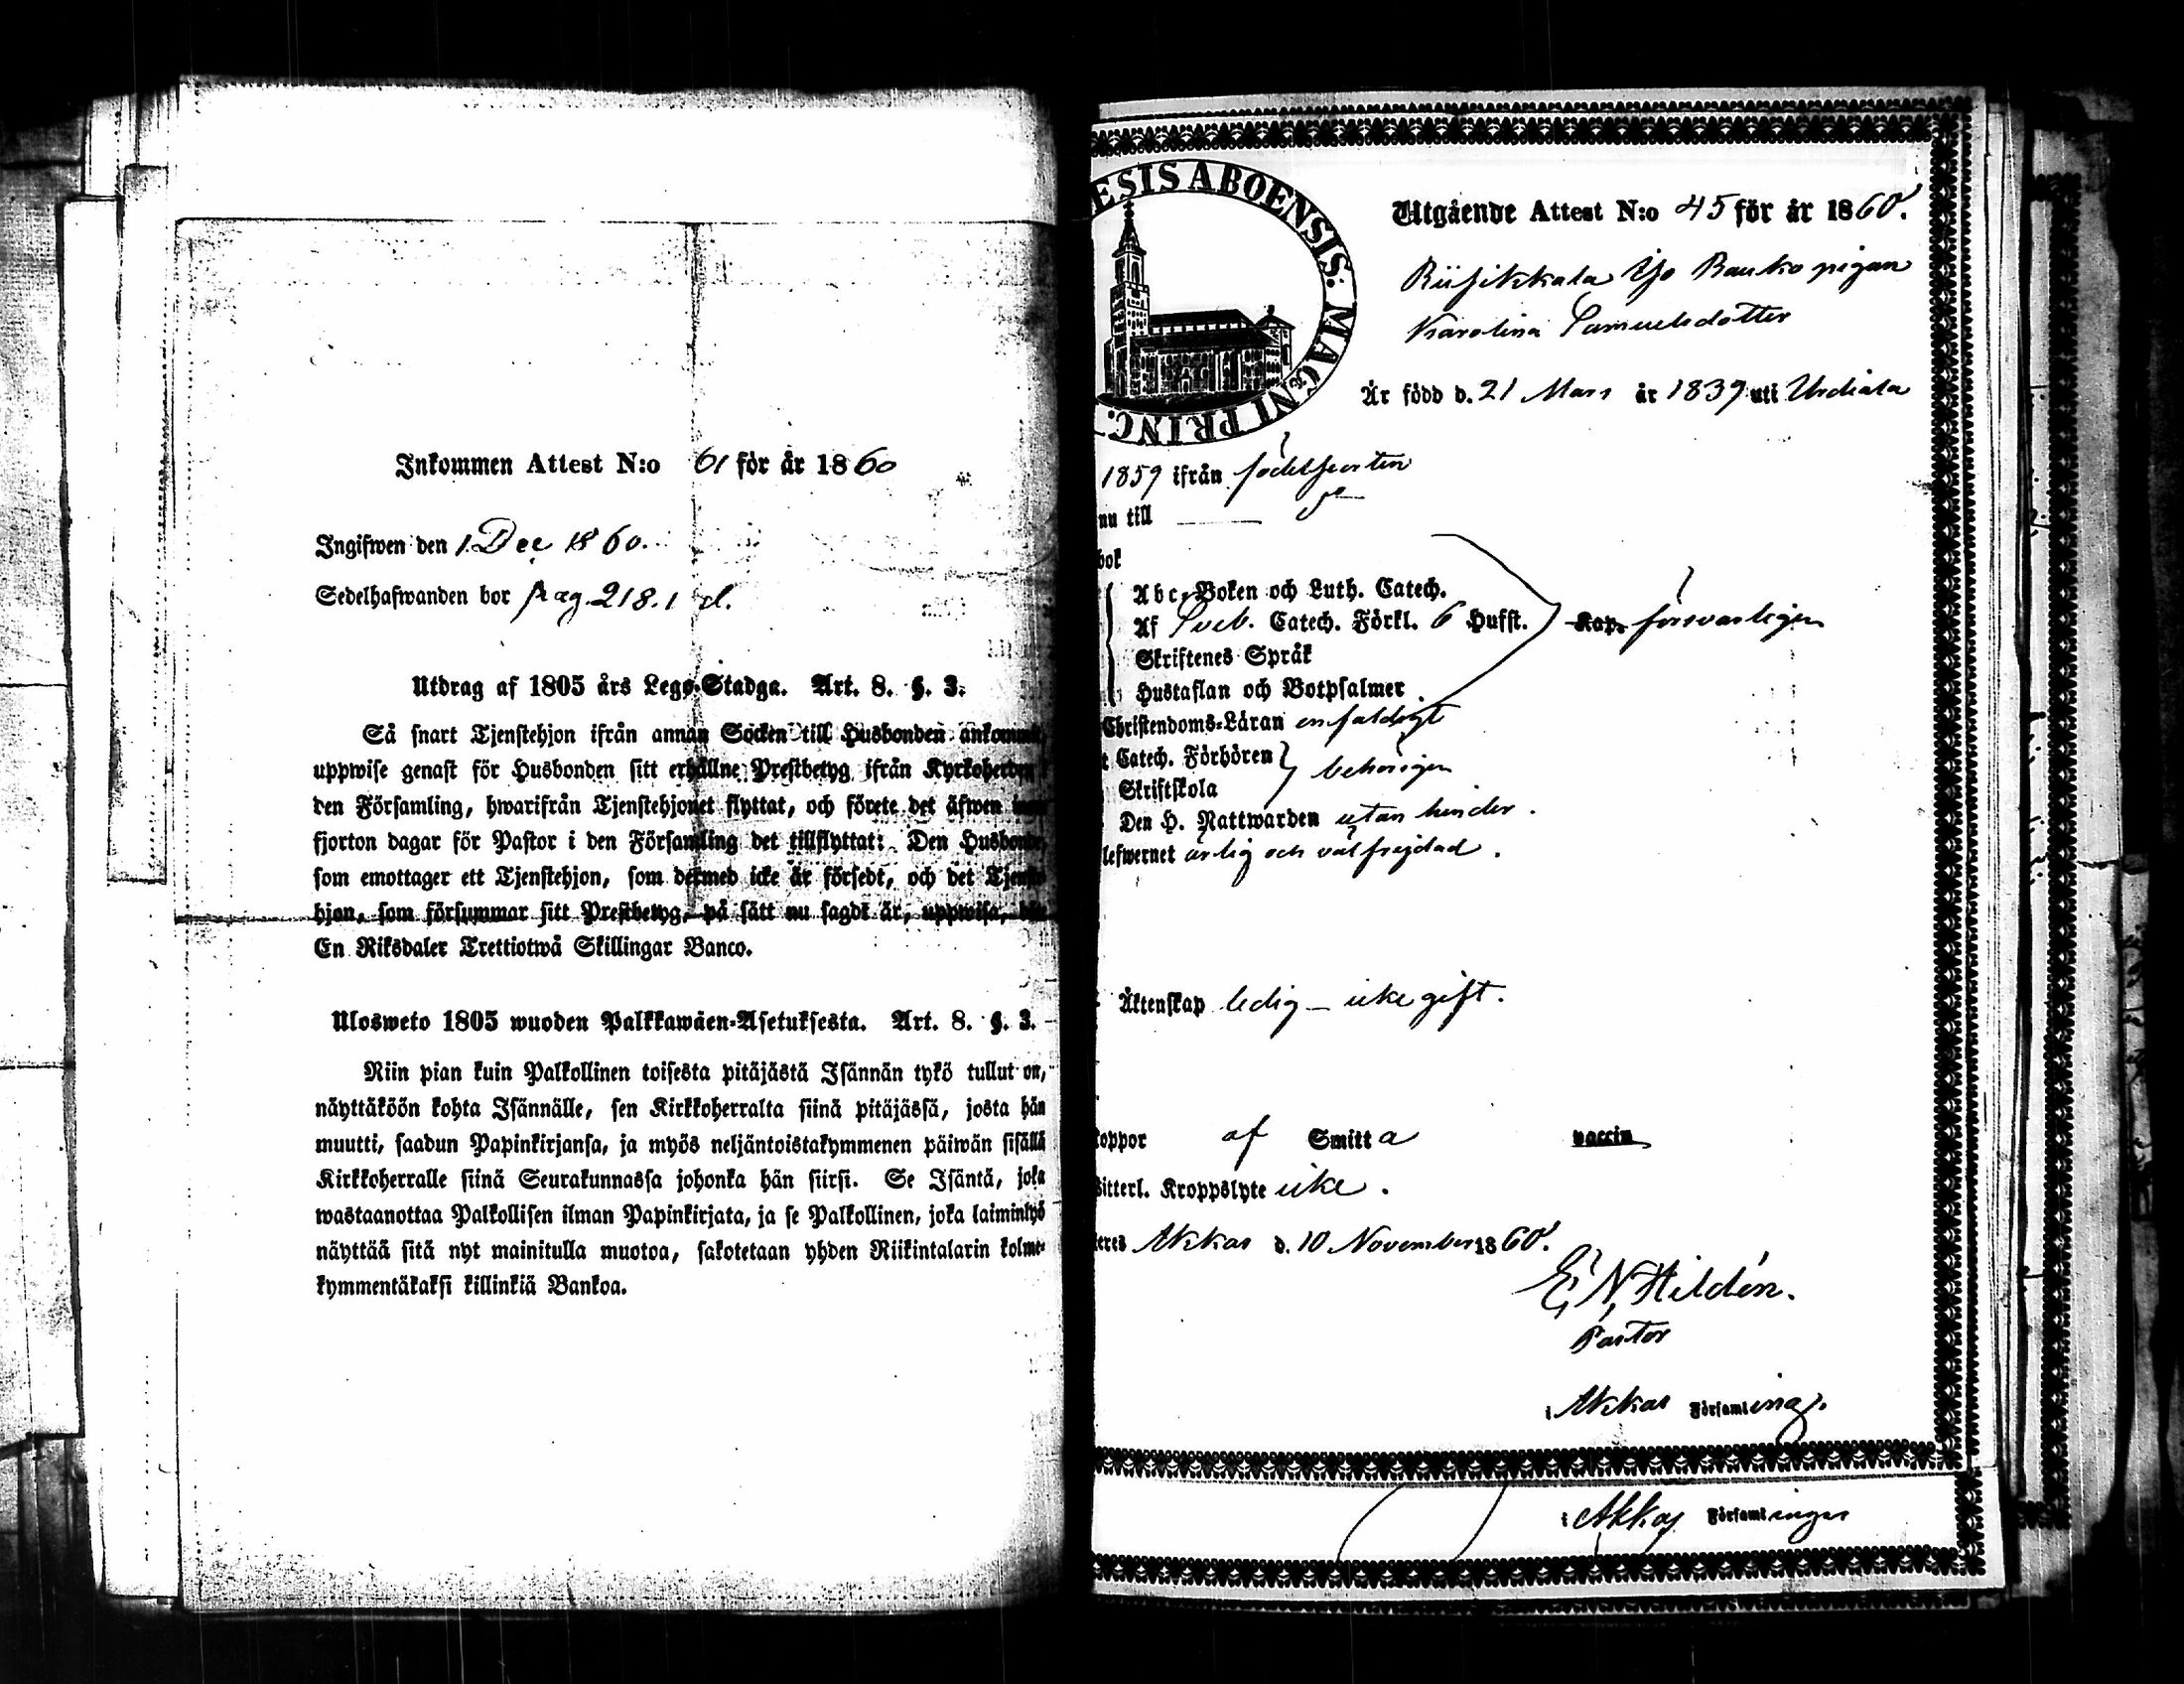 Inkommen Attest N:o 61 för år 1860
Ingifwen den 1 Dec 1860.
Sedelhafwanden bor pag. 218. 1 d.
Utdrag af 1805 års Lego-Stadga. Art. 8. §. 3.
Så snart Tjenstehjon ifrån annan Socken till Husbonden ankommit
uppwise genast för Husbonden sitt erhållne Prestbetyg ifrån Kyrkoherden
den Församling, hwarifrån Tjenstehjonet flyttat, och förete det äfwen
fjorton dagar för Pastor i den Församling det tillflyttat: Den Husbonde
som emottager ett Tjenstehjon, som dermed icke är försedt, och det Tjenste-
hjon, som försummar sitt Prestbetyg, på sätt nu sagdt är, uppwisa,
En Riksdaler Trettiotwå Skillingar Banco.
Ulosweto 1805 wuoden Palkkawäen-Asetuksesta. Art. 8. §. 3.
Niin pian kuin Palkollinen toisesta pitäjästä Isännän tykö tullut on,
näyttäköön kohta Isännälle, sen Kirkkoherralta siinä pitäjässä, josta hän
muutti, saadun Papinkirjansa, ja myös neljäntoistakymmenen päiwän sisällä
Kirkkoherralle siinä Seurakunnassa johonka hän siirsi. Se Isäntä, joka
wastaanottaa Palkollisen ilman Papinkirjata, ja se Palkollinen, joka laiminlyö
näyttää sitä nyt mainitulla muotoa, sakotetaan yhden Riikintalarin kolme-
kymmentäkaksi killinkiä Bankoa.
ESIS ABOENSIS: MAGNI PRINC.
Utgående Attest N:o 45 för år 1860.
Riisikkala Yso Rauko pigan
Karolina Samuelsdotter
Är född d. 21 Mars år 1839 uti Urdiala
1859 ifrån födelseorten
nu till
bok
Abc-Boken och Luth. Catech.
Af Sveb. Catech. Förkl. 6 Hufst. Kap. försvarligen
Skriftenes Språk
Hustaflan och Botpsalmer
Christendoms-Läran enfaldigt
t Catech. Förhören behörigen
Skriftskola
Den H. Nattwarden utan hinder.
lefwernet ärlig och välfrejdad.
Äktenskap ledig – icke gift.
koppor af Smitta vaccin
Witterl. Kroppslyte icke.
teres Akkas d. 10 November 1860.
E. N. Hildén.
Pastor
i Akkas Församling.
i Akkas Församlingar